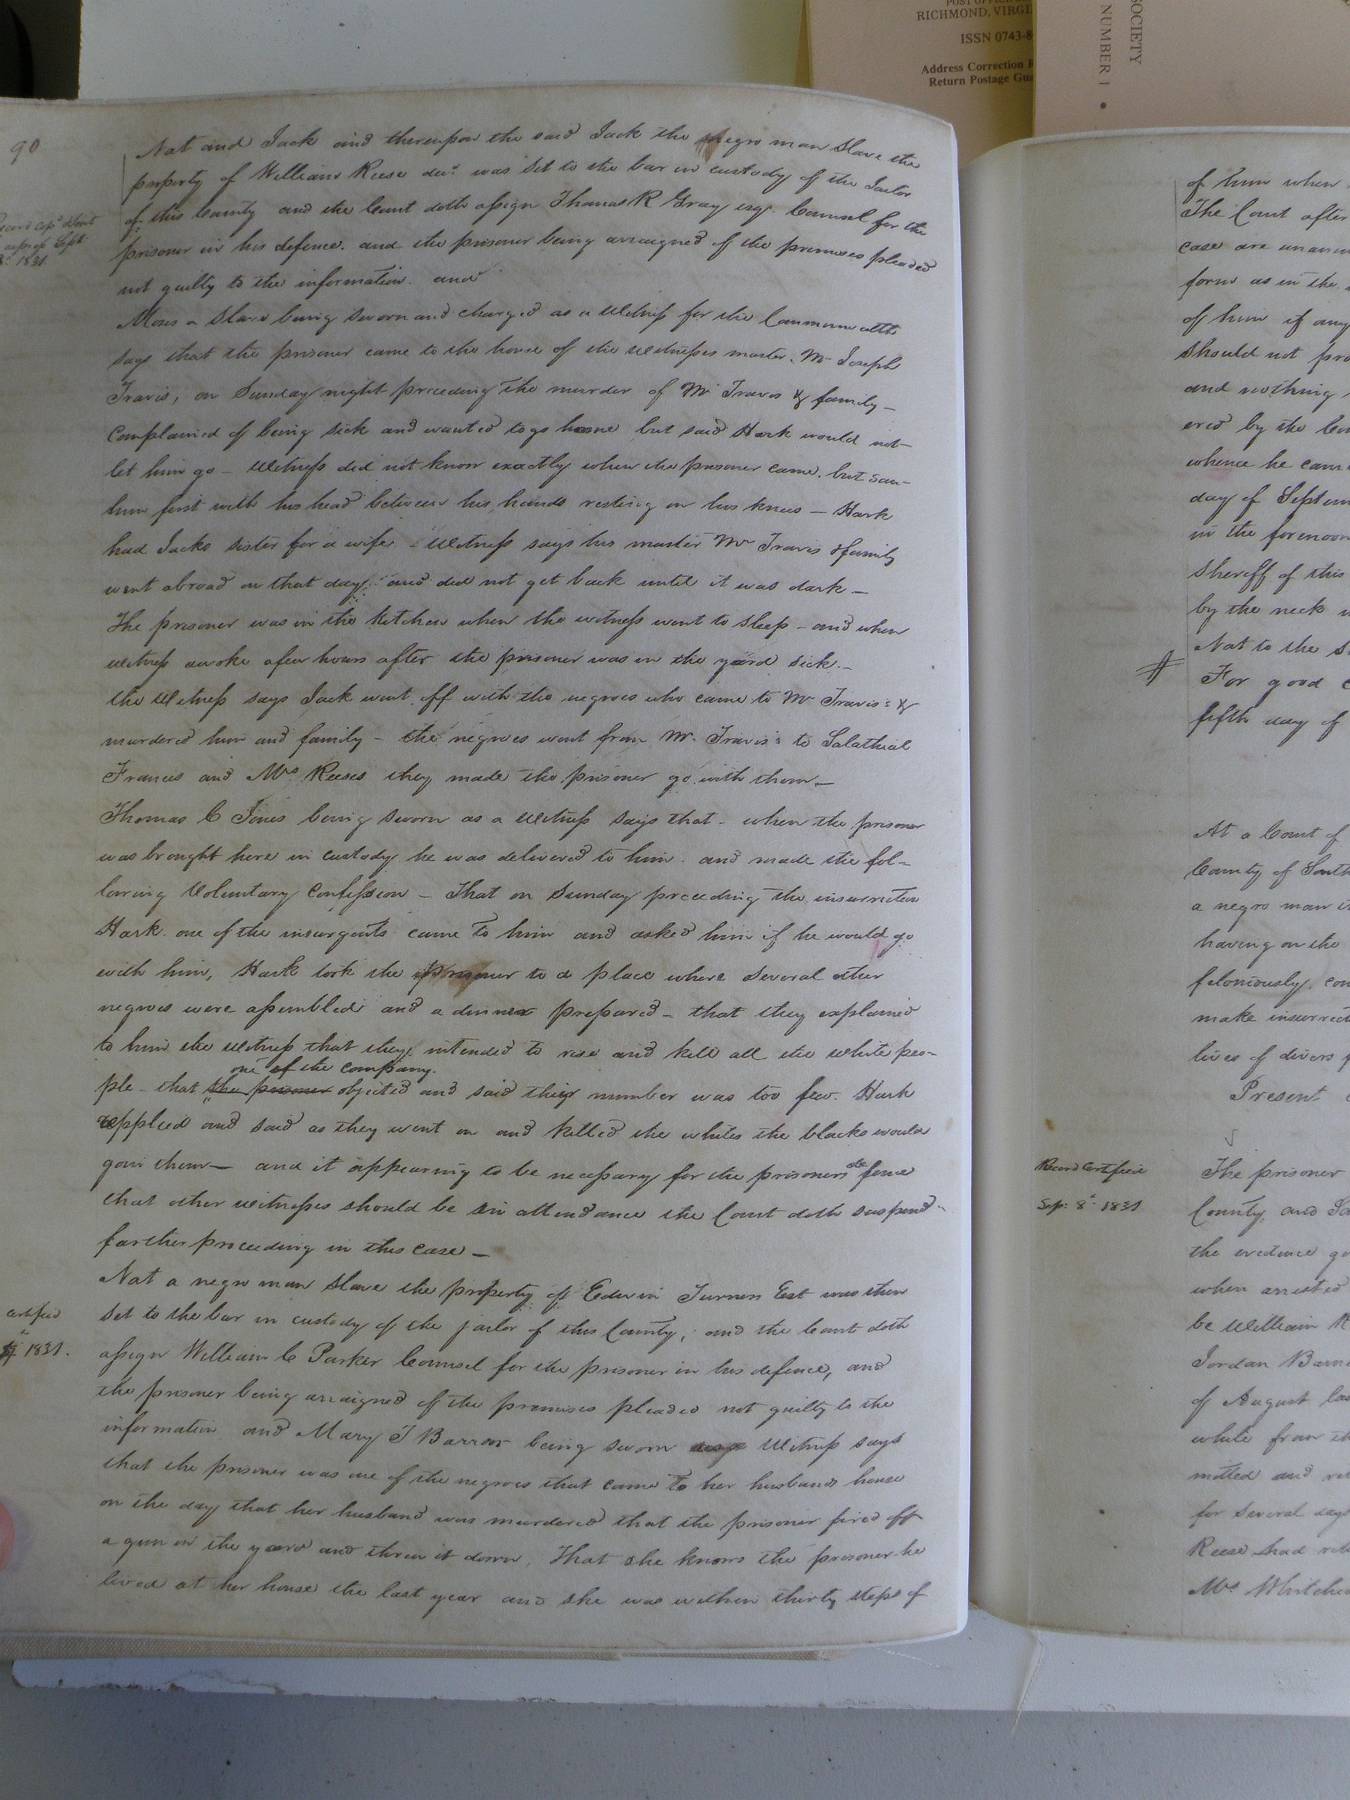 POST OFFICE
RICHMOND, VIRGI
ISSN 0743-8
Address Correction
Return Postage Gua
SOCIETY
NUMBER 1
90
Nat and Jack and thereupon the said Jack the negro man Slave the
property of William Reese decd. was set to the bar in custody of the Jailor
of this County and the Court doth assign Thomas R Gray esqr. Counsel for the
prisoner in his defence. and the prisoner being arraigned of the premises pleaded
not guilty to the information. and
Moses a Slave being sworn and charged as a Witness for the Commonwealth
says that the prisoner came to the house of the witnesses master, Mr Joseph
Travis, on Sunday night preceding the murder of Mr Travis & family –
Complained of being sick and wanted to go home but said Hark would not
let him go – Witness did not know exactly when the prisoner came, but saw
him first with his head between his hands resting on his knees – Hark
had Jacks sister for a wife – Witness says his master Mr Travis & family
went abroad on that day, and did not get back until it was dark –
The prisoner was in the Kitchen when the witness went to sleep – and when
witness awoke a few hours after the prisoner was in the yard sick –
the Witness says Jack went off with the negroes who came to Mr Travis's &
murdered him and family – the negroes went from Mr. Travis's to Salathial
Frances and Mrs Reeses they made the prisoner go with them –
Thomas C Jones being sworn as a Witness says that – when the prisoner
was brought here in custody he was delivered to him. and made the fol-
lowing Voluntary Confession – That on Sunday preceding the insurrection
Hark one of the insurgents came to him and asked him if he would go
with him, Hark took the prisoner to a place where several other
negroes were assembled and a dinner prepared – that they explained
to him the Witness that they intended to rise and kill all the white peo-
one of the company.
ple – that the prisoner objected and said their number was too few. Hark
replied and said as they went on and killed the whites the blacks would
join them – and it appearing to be necessary for the prisoners defence
that other witnesses should be in attendance the Court doth suspend
farther proceeding in this case –
Nat a negro man Slave the property of Edwin Turners Est was then
set to the bar in custody of the jailor of this County, and the Court doth
assign William C Parker Counsel for the prisoner in his defence, and
the prisoner being arraigned of the premises pleaded not guilty to the
information and Mary T Barrow being sworn Witness says
that the prisoner was one of the negroes that came to her husbands house
on the day that her husband was murdered that the prisoner fired off
a gun in the yard and threw it down, That she knows the prisoner he
lived at her house the last year and she was within thirty steps of
Sept
1831
certified
1831.
of him when
The Court after
case are
form as in the
of him if any
should not
and nothing
ered by the
whence he came
day of
in the forenoon
sheriff of this
by the neck
Nat to the
For good
fifth day of
At a Court of
County of
a negro man
having on the
feloniously
make
lives of divers
Present
Record Certified
Sep: 8th 1831
The prisoner
County, and
the evidence
when arrested
be William
Jordan
of August
while from
mitted and
for several days
Reese had
Mrs